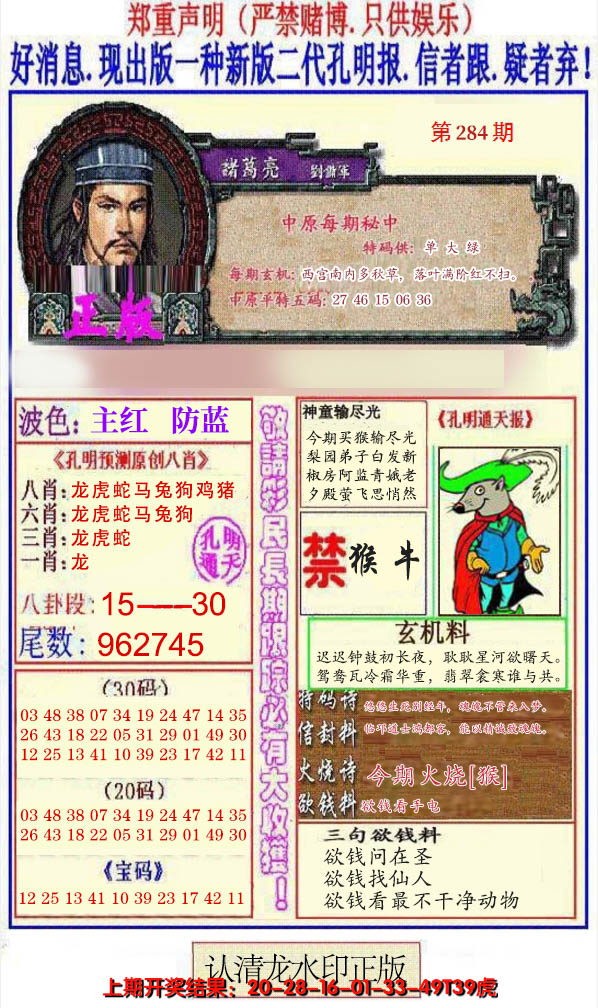 郑重声明（严禁赌博.只供娱乐）
好消息.现出版一种新版二代孔明报.信者跟.疑者弃！
第284期
諸葛亮
中原每期秘中
特码供：单 大 绿
每期玄机：西宫南内多秋草，落叶满阶红不扫。
中原平特五码：27 46 15 06 36
正版
波色：主红 防蓝
《孔明预测原创八肖》
八肖：龙虎蛇马兔狗鸡猪
六肖：龙虎蛇马兔狗
三肖：龙虎蛇
一肖：龙
孔明
通天
八卦段：15——30
尾数：962745
（30码）
03 48 38 07 34 19 24 47 14 35
26 43 18 22 05 31 29 01 49 30
12 25 13 41 10 39 23 17 42 11
（20码）
03 48 38 07 34 19 24 47 14 35
26 43 18 22 05 31 29 01 49 30
《宝码》
12 25 13 41 10 39 23 17 42 11
敬請彩民長期跟踪必有大收獲！
神童输尽光
今期买猴输尽光
梨园弟子白发新
椒房阿监青娥老
夕殿萤飞思悄然
《孔明通天报》
禁 猴 牛
玄机料
迟迟钟鼓初长夜，耿耿星河欲曙天。
鸳鸯瓦冷霜华重，翡翠衾寒谁与共。
特码诗 悠悠生死别经年，魂魄不曾来入梦。
信封料 临邛道士鸿都客，能以精诚致魂魄。
火烧诗 今期火烧[猴]
欲钱料 欲钱看手电
三句欲钱料
欲钱问在圣
欲钱找仙人
欲钱看最不干净动物
认清龙水印正版
上期开奖结果：20-28-16-01-33-49T39虎